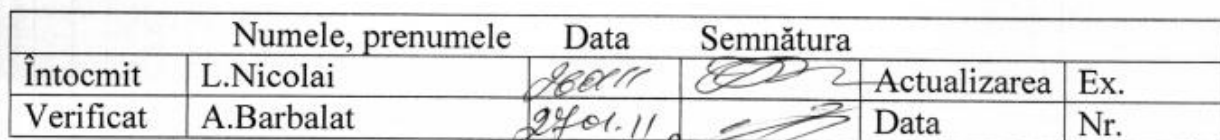 Numele, prenumele Data Semnătura
Întocmit L.Nicolai 260111 Actualizarea Ex.
Verificat A.Barbalat 27.01.11 Data Nr.